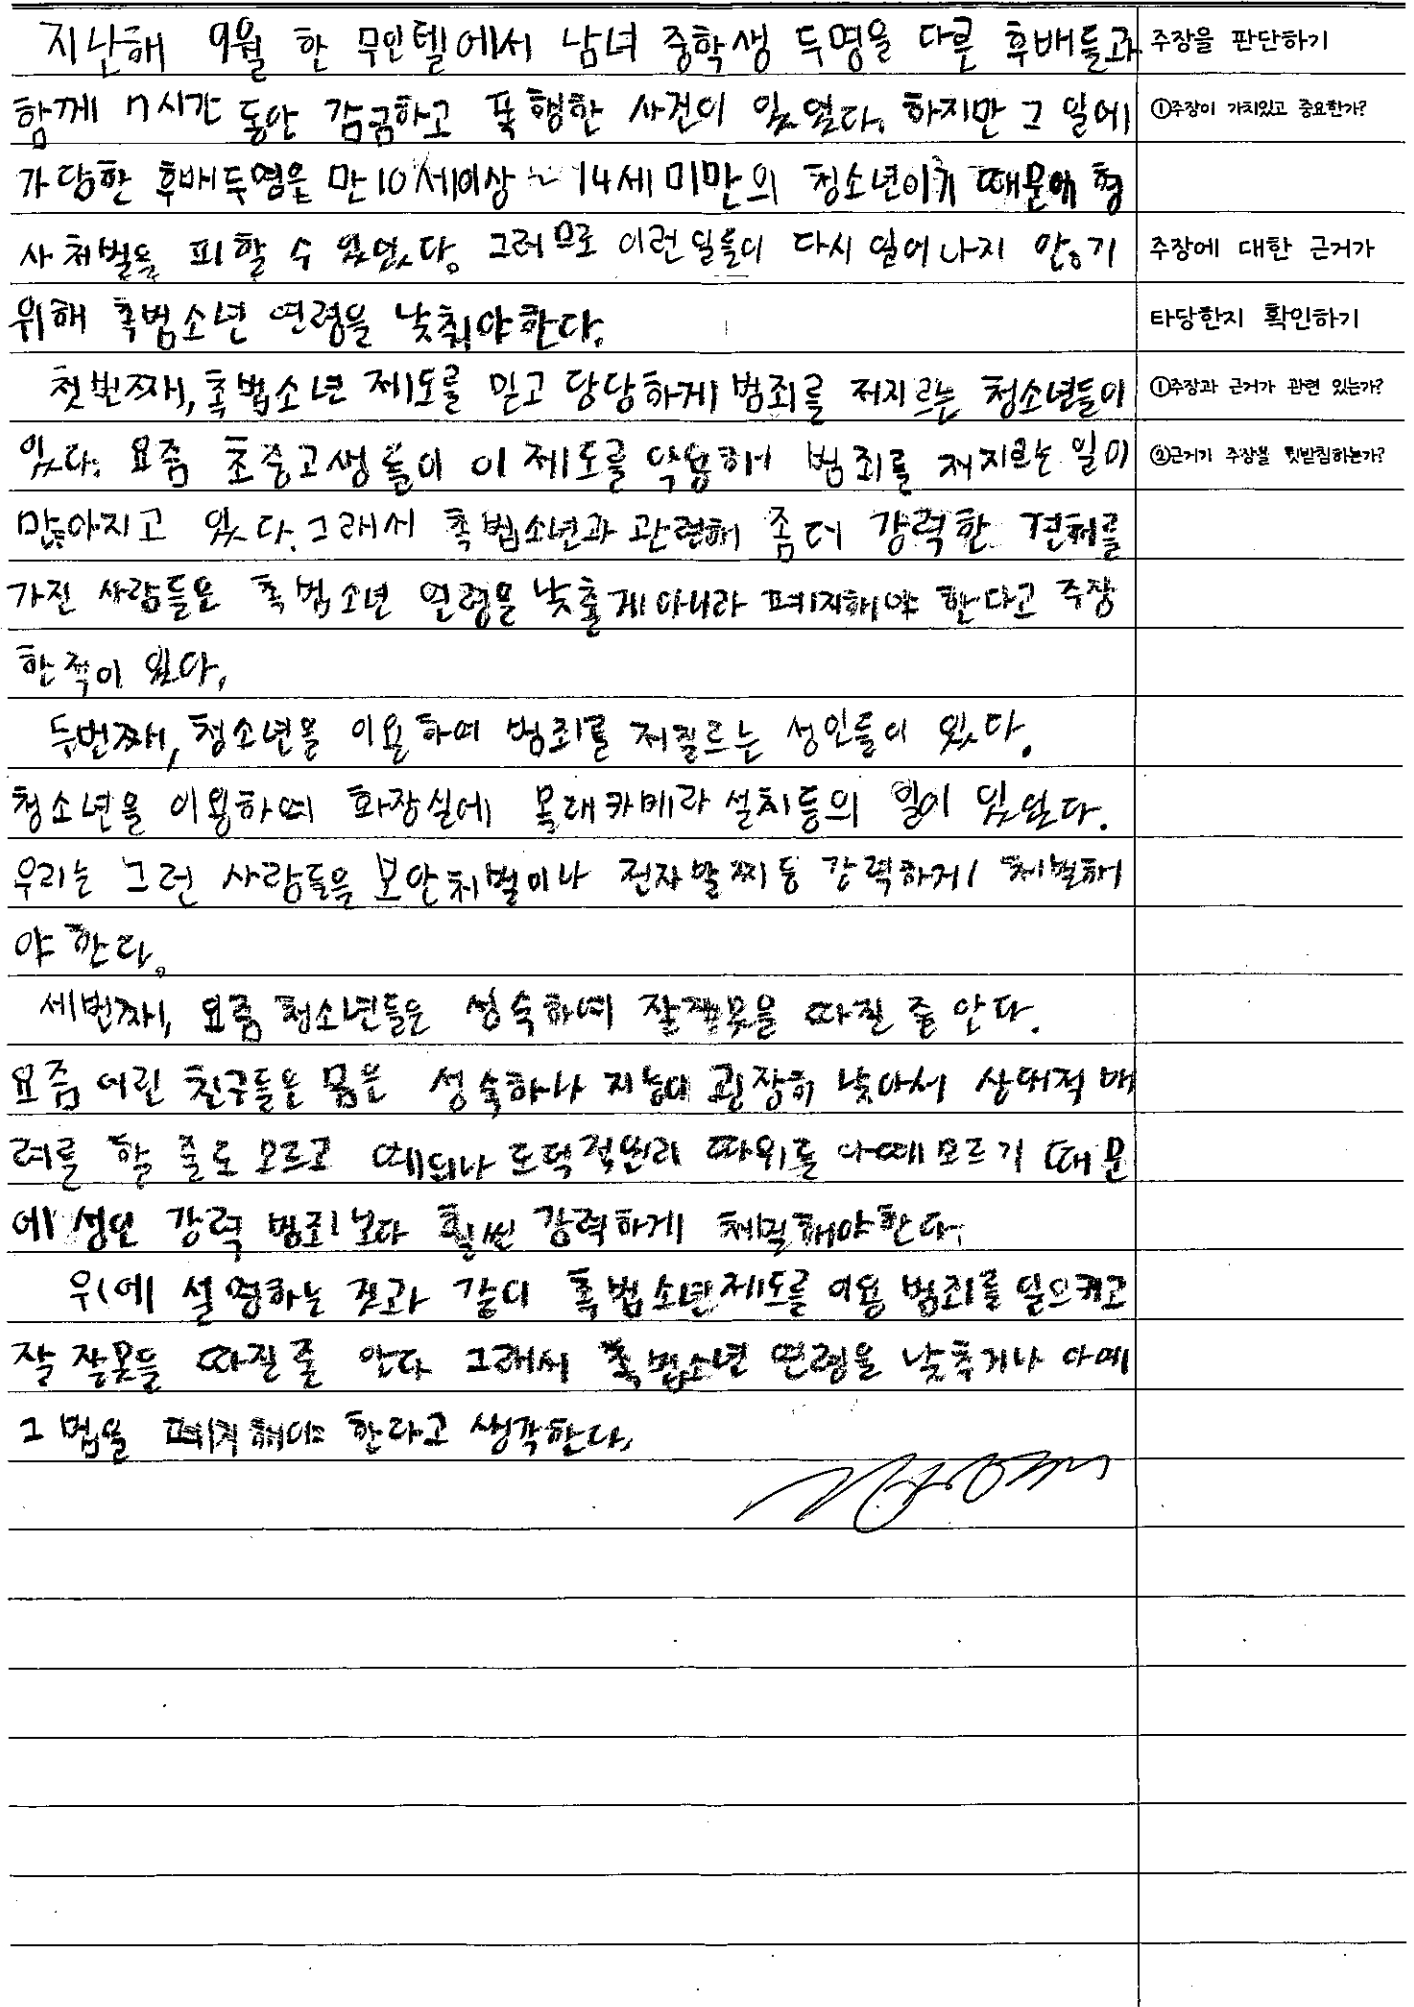 지난해 9월 한 무인텔에서 남녀 중학생 두명을 다른 후배들과
함께 n시간 동안 감금하고 폭행한 사건이 있었다. 하지만 그 일에
가담한 후배두명은 만10세이상~14세미만의 청소년이기 때문에 형
사처벌을 피할 수 있었다. 그러므로 이런 일들이 다시 일어나지 않기
위해 촉법소년 연령을 낮춰야한다.
첫번째, 촉법소년 제도를 믿고 당당하게 범죄를 저지르는 청소년들이
있다. 요즘 초중고생들이 이 제도를 악용해 범죄를 저지르는 일이
많아지고 있다. 그래서 촉법소년과 관련해 좀더 강력한 견해를
가진 사람들은 촉법소년 연령을 낮출게아니라 폐지해야 한다고 주장
한적이 있다.
두번째, 청소년을 이용하여 범죄를 저질르는 성인들이 있다.
청소년을 이용하여 화장실에 몰래카메라 설치등의 일이 있었다.
우리는 그런 사람들을 보안처벌이나 전자발찌등 강력하게 처벌해
야 한다.
세번째, 요즘 청소년들은 성숙하여 잘잘못을 따질 줄 안다.
요즘 어린 친구들은 몸은 성숙하나 지능이 굉장히 낮아서 상대적 배
려를 할 줄도 모르고 예의나 도덕적원리 따위를 아예 모르기 때문
에 성인 강력 범죄보다 훨씬 강력하게 처벌해야한다.
위에 설명하는 것과 같이 촉법소년제도를 이용 범죄를 일으키고
잘잘못을 따질줄 안다 그래서 촉법소년 연령을 낮추거나 아예
그 법을 폐지해야 한다고 생각한다.
주장을 판단하기
①주장이 가치있고 중요한가?
주장에 대한 근거가
타당한지 확인하기
①주장과 근거가 관련 있는가?
②근거가 주장을 뒷받침하는가?